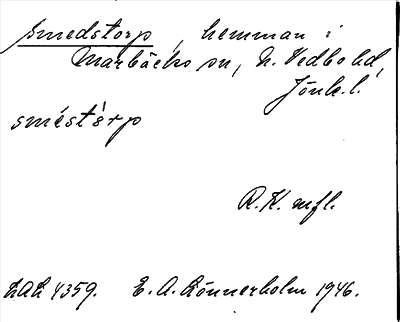 Smedstorp, hemman i
Marbäcks sn, N. Vedbo hd,
Jönk. l.
sméstặrp
R.K. mfl.
LAL 4359. E. A. Rönnerholm 1946.